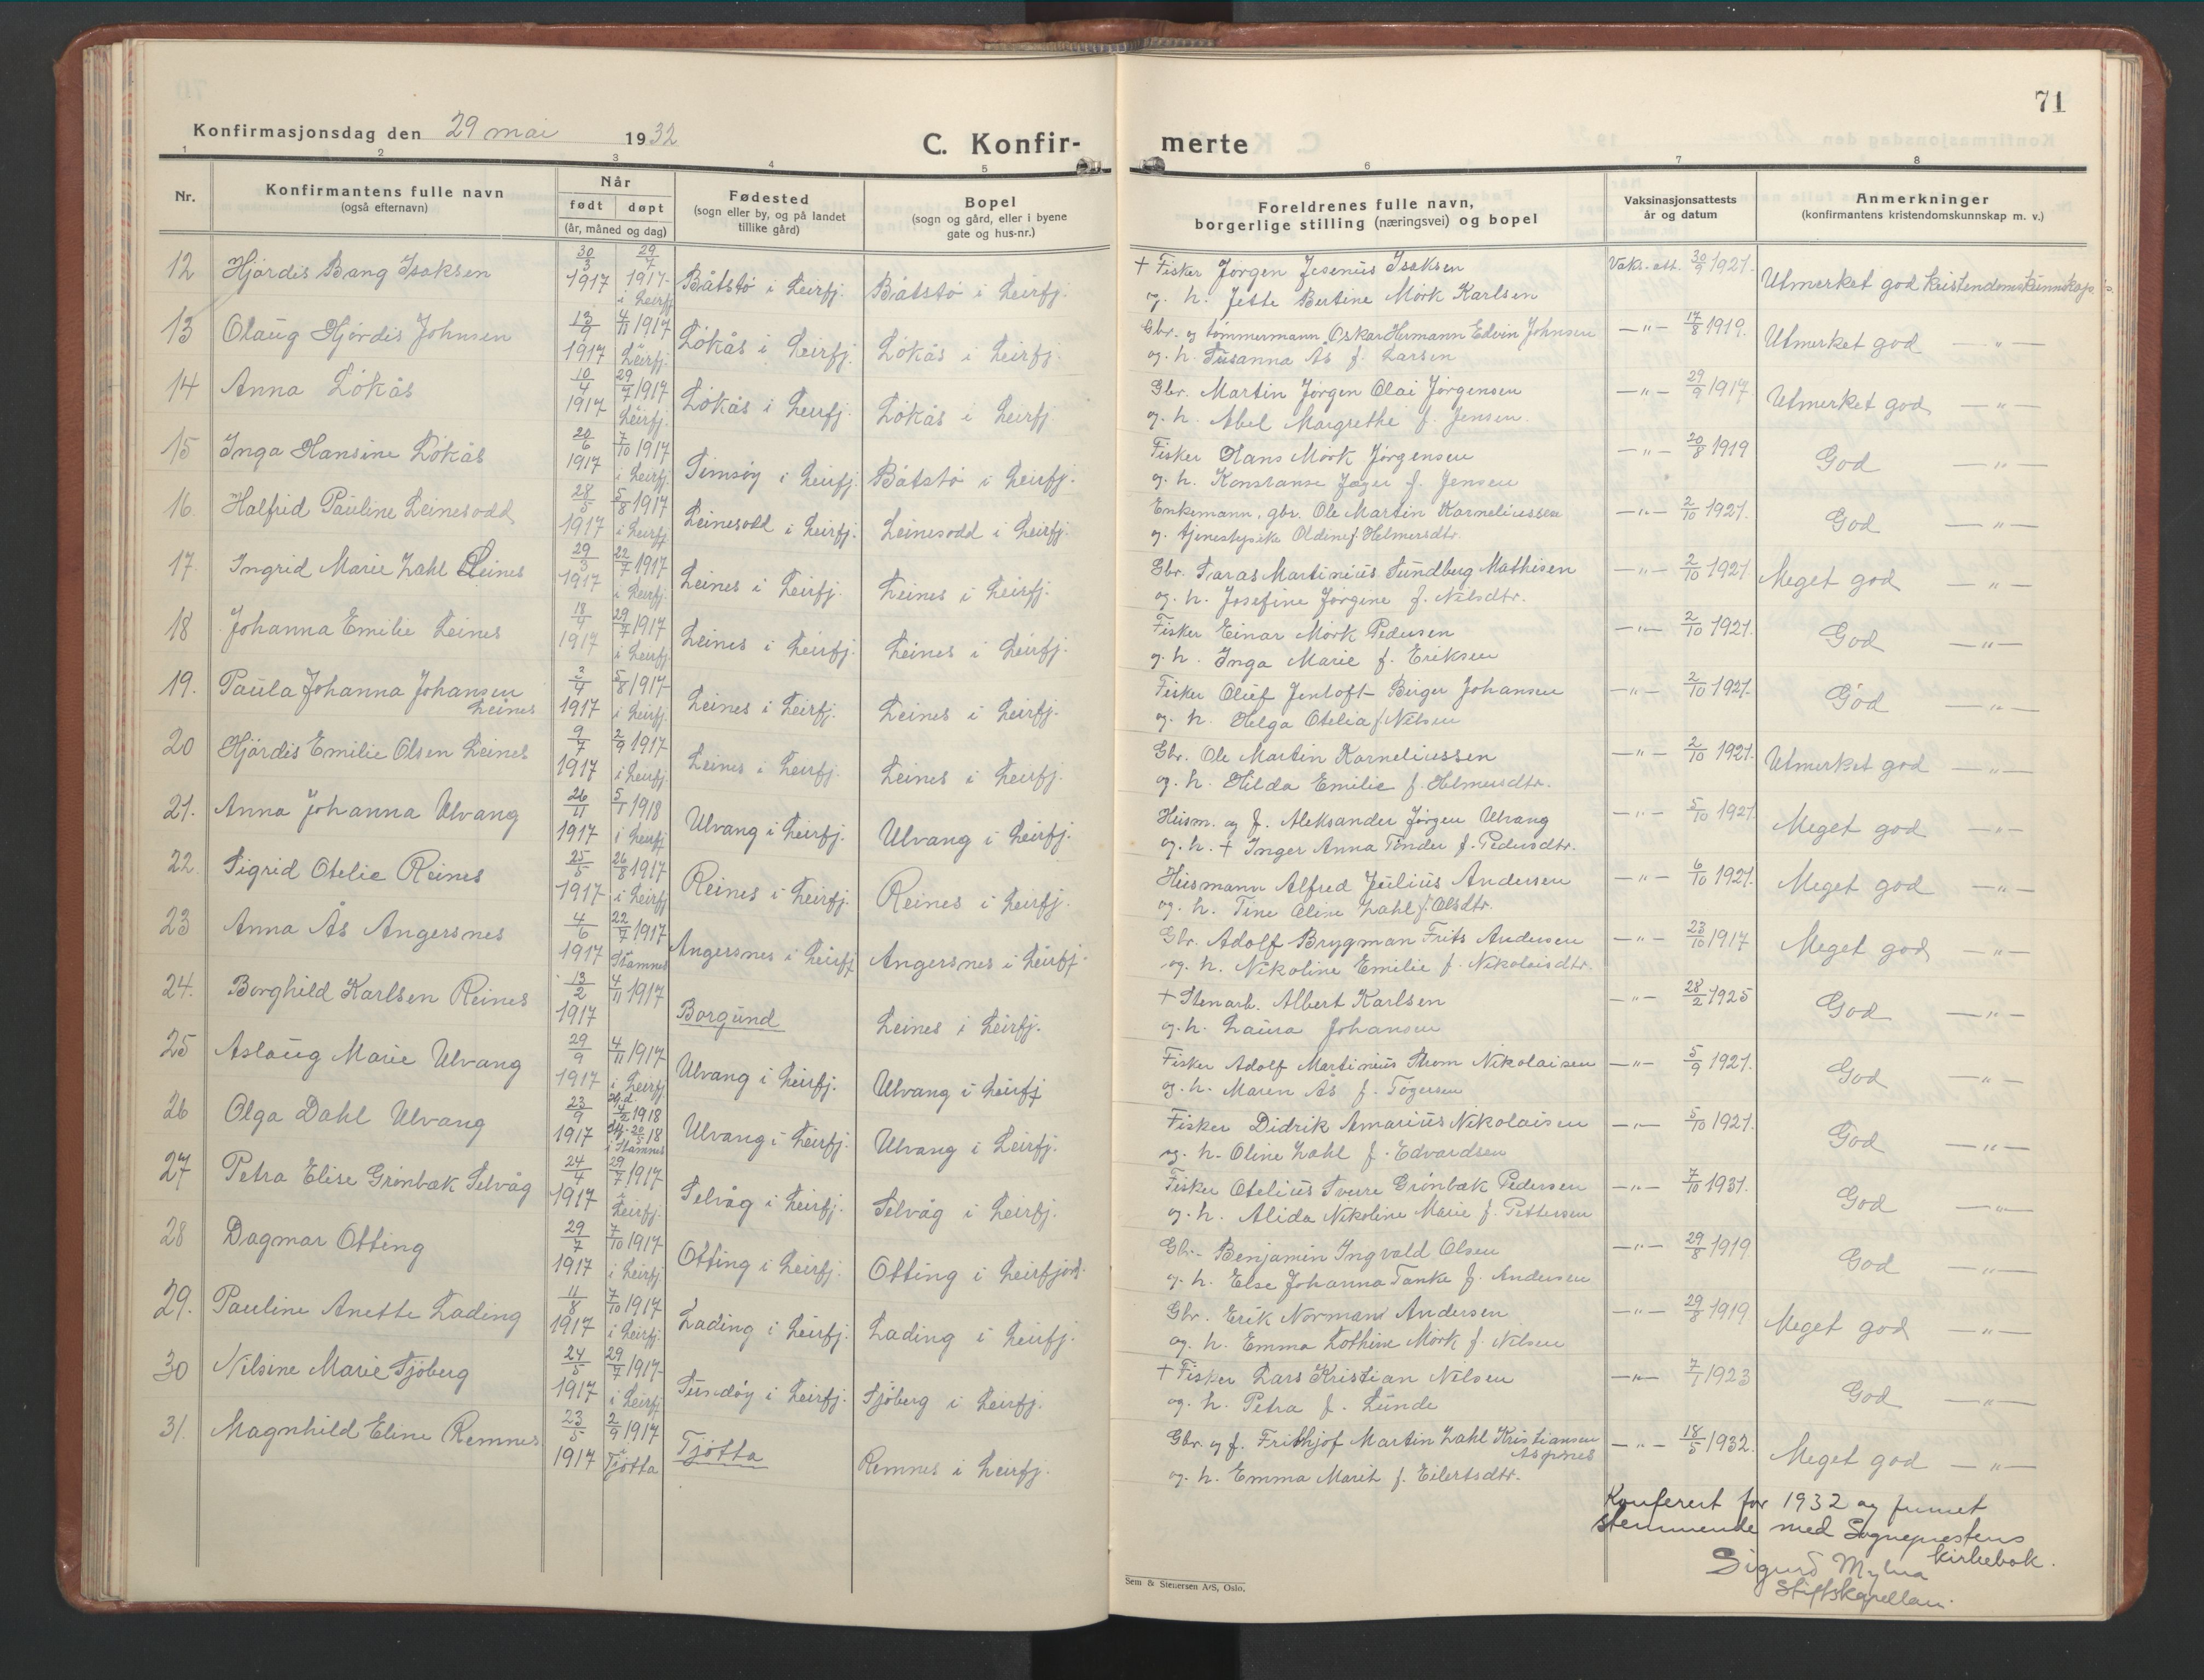 71
Konfirmasjonsdag den 29 mai 1932
C. Konfirmerte
1 2 3 4 5 6 7 8
Nr.
Konfirmantens fulle navn
(også efternavn)
Når
født døpt
(år, måned og dag)
Fødested
(sogn eller by, og på landet
tillike gård)
Bopel
(sogn og gård, eller i byene
gate og hus-nr.)
Foreldrenes fulle navn,
borgerlige stilling (næringsvei) og bopel
Vaksinasjonsattests
år og datum
Anmerkninger
(konfirmantens kristendomskunnskap m. v.)
12 Hjördis Bang Isaksen 30/3 1917 29/7 1917 i Leirfj. Båtstø i Leirfj. Båtstø i Leirfj. + Fisker Jørgen Jesenius Isaksen Vaks. att. 30/9 1921. Utmerket god kristendomskunnskap.
og h. Jette Bertine Mørk Karlsen
13 Olaug Hjørdis Johnsen 1917 4/11 1917 Leirfj. Løkås i Leirfj. Løkås i Leirfj. Gbr. og tømmermann Oskar Hermann Edvin Johnsen —"— 17/8 1919. Utmerket god —"—
og h. Susanna Ås f. Larsen
14 Anna Løkås 10/4 1917 29/7 1917 Leirfj. Løkås i Leirfj. Løkås i Leirfj Gbr. Martin Jørgen Olai Jørgensen —"— 29/9 1917 Utmerket god —"—
og h. Abel Margrethe f. Jensen.
15 Inga Hansine Løkås 20/6 1917 7/10 1917 i Leirfj. Simsøy i Leirfj. Båtstø i Leirfj. Fisker Hans Mørk Jørgensen —"— 20/8 1919 God —"—
og h. Konstanse Jæger f. Jensen
16 Halfrid Pauline Leinesodd 28/5 1917 5/8 1917 i Leirfj. Leinesodd i Leirfj. Leinesodd i Leirfj. Enkemann, gbr. Ole Martin Korneliussen —"— 2/10 1921. God —"—
og tjenestepike Oldine f. Helmersdtr.
17. Ingrid Marie Zahl Leines 29/3 1917 22/7 1917 i Leirfj. Leines i Leirfj. Leines i Leirfj. Gbr. Saras Martinius Sundberg Mathisen —"— 2/10 1921 Meget god —"—
og h. Josefine Jørgine f. Nilsdtr.
18 Johanna Emilie Leines 18/4 1917 29/7 1917 i Leirfj. Leines i Leirfj. Leines i Leirfj. Fisker Einar Mørk Pedersen —"— 2/10 1921. God —"—
og h. Inga Marie f. Eriksen
19. Paula Johanna Johansen Leines 2/4 1917 5/8 1917 i Leirfj. Leines i Leirfj. Leines i Leirfj. Fisker Oluf Jentoft Birger Johansen —"— 2/10 1921. God —"—
og h. Helga Otelia f. Nilsen
20 Hjördis Emilie Olsen Leines 9/7 1917 2/9 1917 i Leirfj. Leines i Leirfj. Leines i Leirfj. Gbr. Ole Martin Korneliussen —"— 2/10 1921. Utmerket god —"—
og h. Hilda Emilie f. Helmersdtr.
21. Anna Johanna Ulvang 26/11 1917 5/1 1918 i Leirfj Ulvang i Leirfj. Ulvang i Leirfj. Husm. og f. Aleksander Jørgen Ulvang —"— 5/10 1921. Meget god —"—
og h. + Inger Anna Tinder f. Pedersdtr.
22. Sigrid Otelie Reines 25/5 1917 26/8 1917 i Leirfj Reines i Leirfj. Reines i Leirfj. Husmann Alfred Julius Andersen —"— 6/10 1921. Meget god —"—
og h. Tine Oline Zahl f. Olsdtr.
23 Anna Ås Angersnes 4/6 1917 22/7 1917 Stamnes Angersnes i Leirfj Angersnes i Leirfj. Gbr. Adolf Brygman Frits Andersen —"— 23/10 1917 Meget god —"—
og h. Nikoline Emilie f. Nikolaisdtr.
24. Borghild Karlsen Reines 13/2 1917 4/11 1917 Borgund Leines i Leirfj. + Stenarb. Albert Karlsen —"— 28/2 1925 God —"—
og h. Laura Johansen
25 Aslaug Marie Ulvang 29/9 1917 4/11 1917 i Leirfj Ulvang i Leirfj. Ulvang i Leirfj Fisker Adolf Martinius Strøm Nikolaisen —"— 5/9 1921. God —"—
og h. Maren Ås f. Togersen
26 Olga Dahl Ulvang 23/9 1917 4/2 1918 20/5 18 i Stamnes Ulvang i Leirfj. Ulvang i Leirfj. Fisker Didrik Amarius Nikolaisen —"— 5/10 1921. God —"—
og h. Oline Zahl f. Edvardsen
27 Petra Elise Grønbæk Selvåg 24/4 1917 29/7 1917 i Leirfj. Selvåg i Leirfj. Selvåg i Leirfj. Fisker Otelius Sverre Grønbæk Pedersen —"— 7/10 1931. God —"—
og h. Alida Nikoline Marie f. Pettersen
28 Dagmar Otting 29/7 1917 7/10 1917 i Leirfj. Otting i Leirfj. Otting i Leirfjord. Gbr. Benjamin Ingvald Olsen —"— 29/8 1919 God —"—
og h. Else Johanna Tanke f. Andersen
29. Pauline Anette Lading 11/8 1917 7/10 1917 i Leirfj. Lading i Leirfj. Lading i Leirfj. Gbr. Erik Normann Andersen —"— 29/8 1919 Meget god —"—
og h. Emma Lothine Mørk f. Nilsen
30 Nilsine Marie Sjøberg 24/5 1917 29/7 1917 i Leirfj Sundøy i Leirfj. Sjøberg i Leirfj. + Fisker Lars Kristian Nilsen —"— 7/1 1923 God —"—
og h. Petra f. Lunde
31. Magnhild Eline Remnes 23/5 1917 2/9 1917 i Tjøtta Tjøtta Remnes i Leirfj. Gbr. og f. Frithjof Martin Zahl Kristiansen Aspnes —"— 18/5 1932. Meget god —"—
og h. Emma Marit f. Eilertsdtr.
Konferert for 1932 og funnet
stemmende med Sogneprestens
kirkebok.
Sigurd Myhra
Stiftskapellan.
Sem & Stenersen A/S, Oslo.